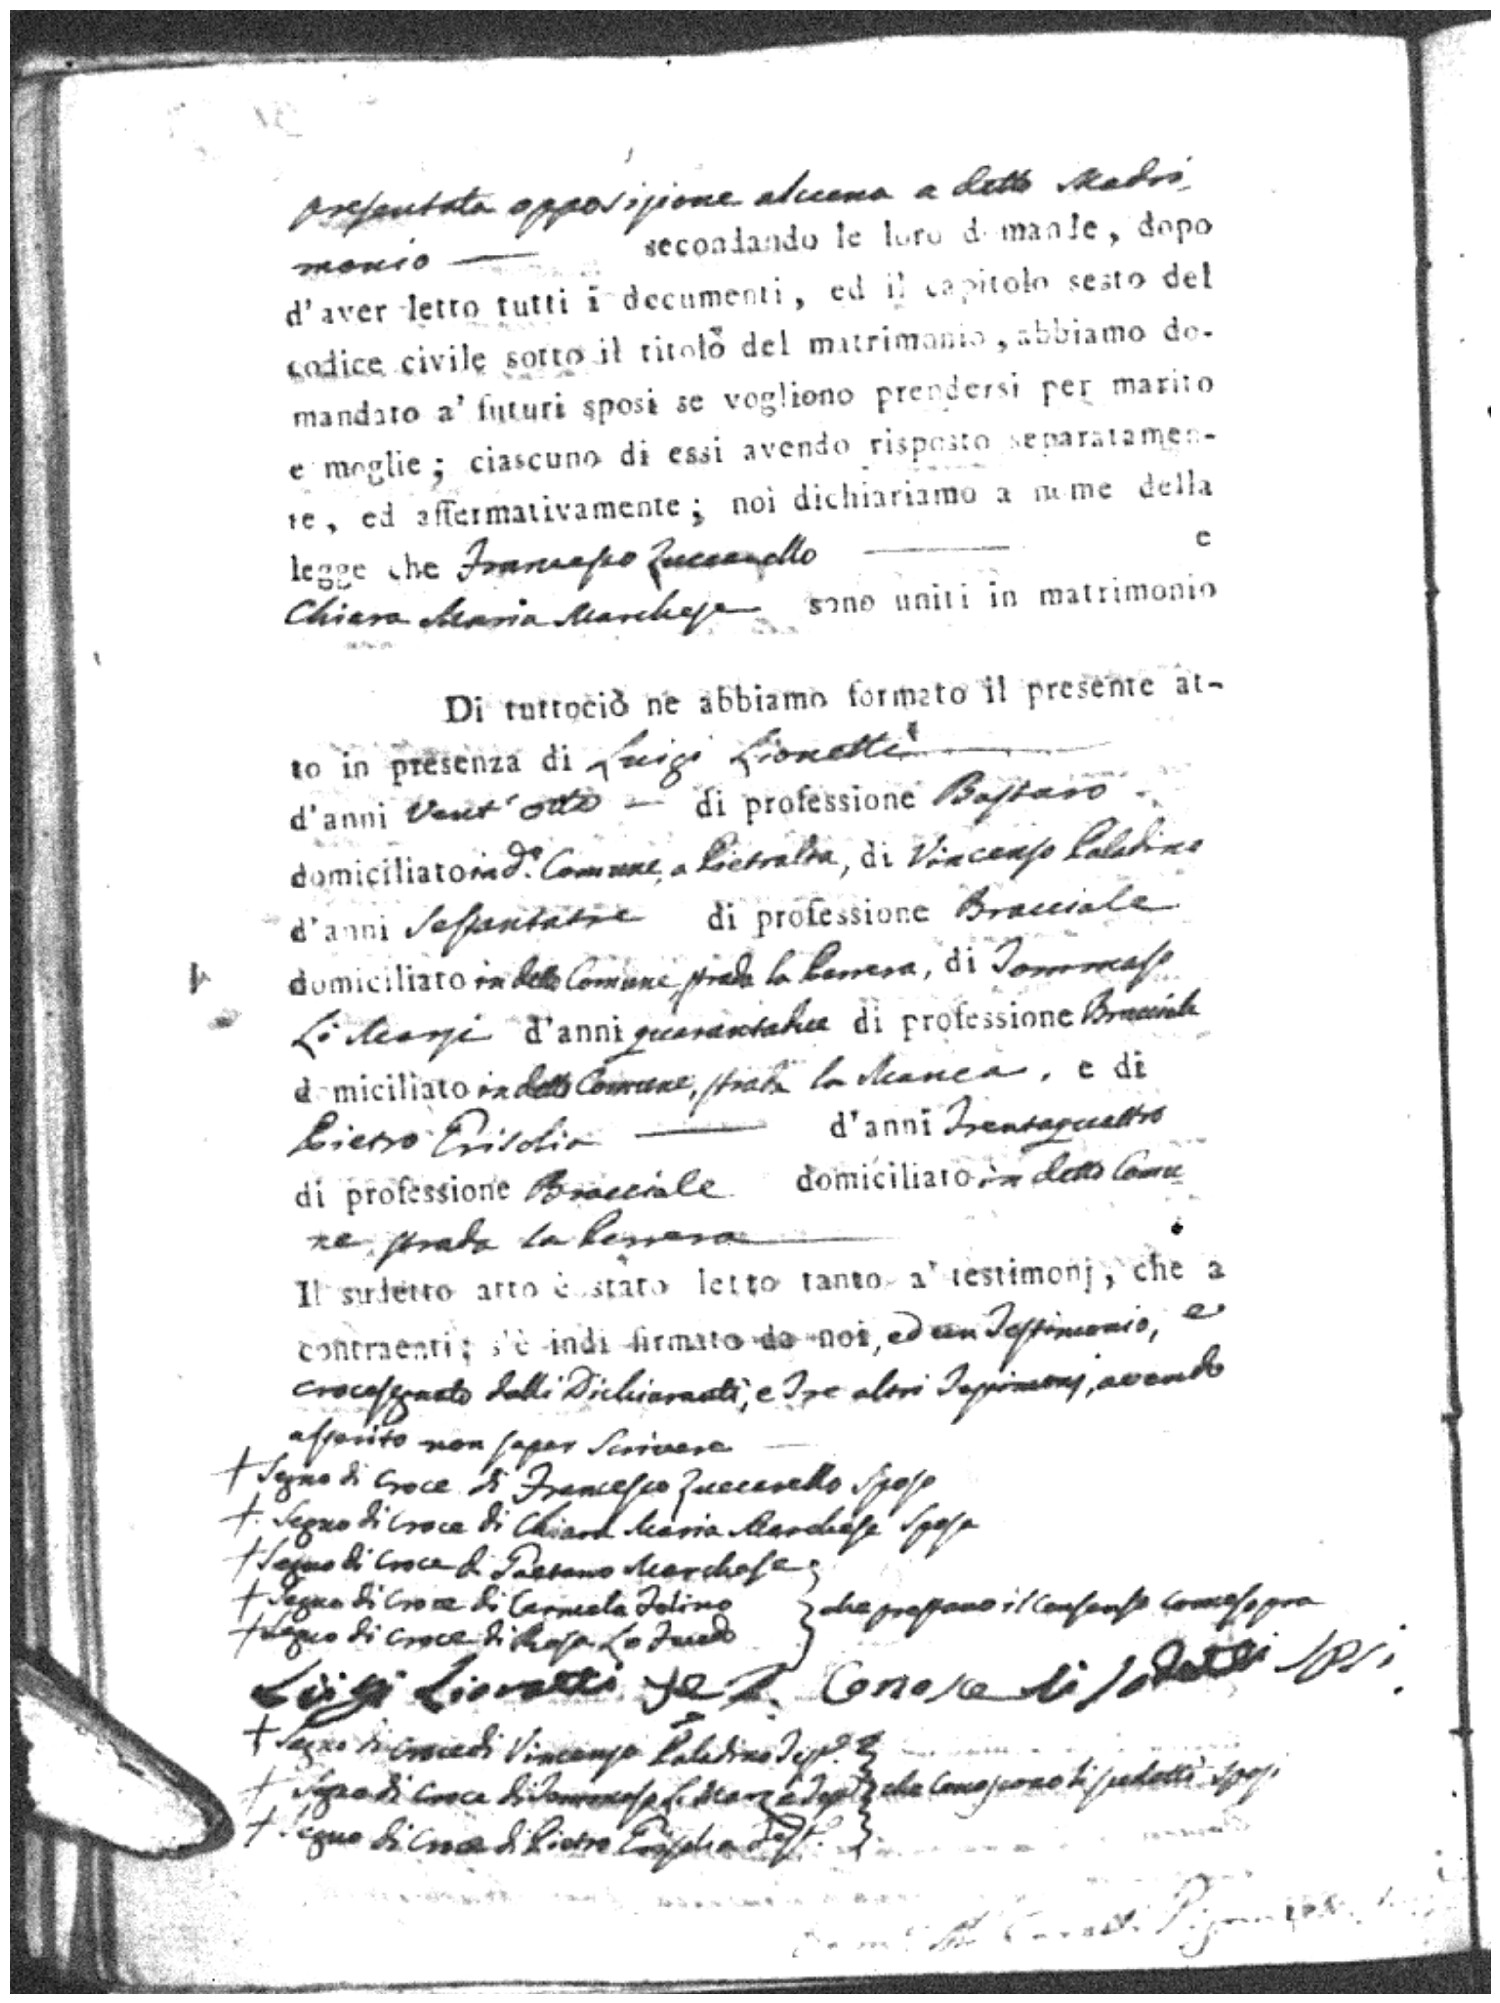 presentata opposizione alcuna a detto Madri-
monio — secondando le loro domande, dopo
d'aver letto tutti i documenti, ed il capitolo sesto del
codice civile sotto il titolo del matrimonio, abbiamo do-
mandato a' futuri sposi se vogliono prendersi per marito
e moglie; ciascuno di essi avendo risposto separatamen-
te, ed affermativamente; noi dichiariamo a nome della
legge che Francesco Zuccarello — e
Chiara Maria Marchese sono uniti in matrimonio
Di tuttociò ne abbiamo formato il presente at-
to in presenza di Luigi Lionetti
d'anni Vent'otto — di professione Bastaro
domiciliato in d.o Comune, a Pietralta, di Vincenzo Paladino
d'anni Sessantatre di professione Bracciale
domiciliato in detto Comune, strada la Perrera, di Tommaso
Li Marzi d'anni quarantadue di professione Bracciale
domiciliato in detto Comune, strada la Manca, e di
Pietro Grisolia — d'anni Trentaquattro
di professione Bracciale domiciliato in detto Comu
ne, strada la Perrera
Il sudetto atto è stato letto tanto a' testimonj, che a
contraenti; s'è indi firmato da noi, ed un Testimonio, e
crocesegnato dalli Dichiaranti, e Tre altri Testimonj, avendo
asserito non saper Scrivere
+ Segno di Croce di Francesco Zuccarello Sposo
+ Segno di Croce di Chiara Maria Marchese Sposa
+ Segno di Croce di Gaetano Marchese
+ Segno di Croce di Carmela Tolino } che prestano il consenso come sopra
+ Segno di Croce di Rosa Lo Tuedo
Luigi Lionetti Conosce li sodetti Spsi
+ Segno di Croce di Vincenzo Paladino Test.o
+ Segno di Croce di Tommaso Li Marzi Test.o } che Conoscono li sudetti sposi
+ Segno di Croce di Pietro Grisolia Test.o